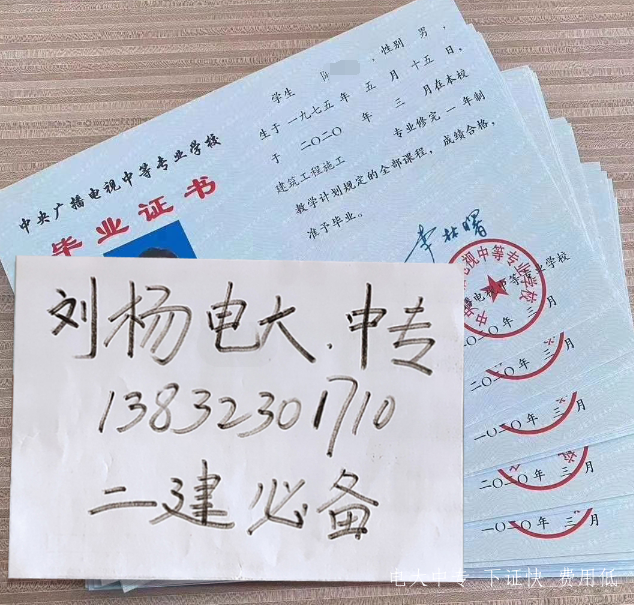 学生 陈 ，性别 男，
生于一九七五年 五 月 十五 日，
于 二〇二〇 年 三 月在本校
建筑工程施工 专业修完 一 年制
教学计划规定的全部课程，成绩合格，
准予毕业。
中央广播电视中等专业学校
毕业证书
李林曙
播电视中等专业学校
二〇二〇年 三 月
二〇二〇年 三 月
二〇二〇年 三 月
二〇二〇年 三 月
二〇二〇年 三 月
刘杨电大.中专
13832301710
二建必备
电大中专 下证快 费用低